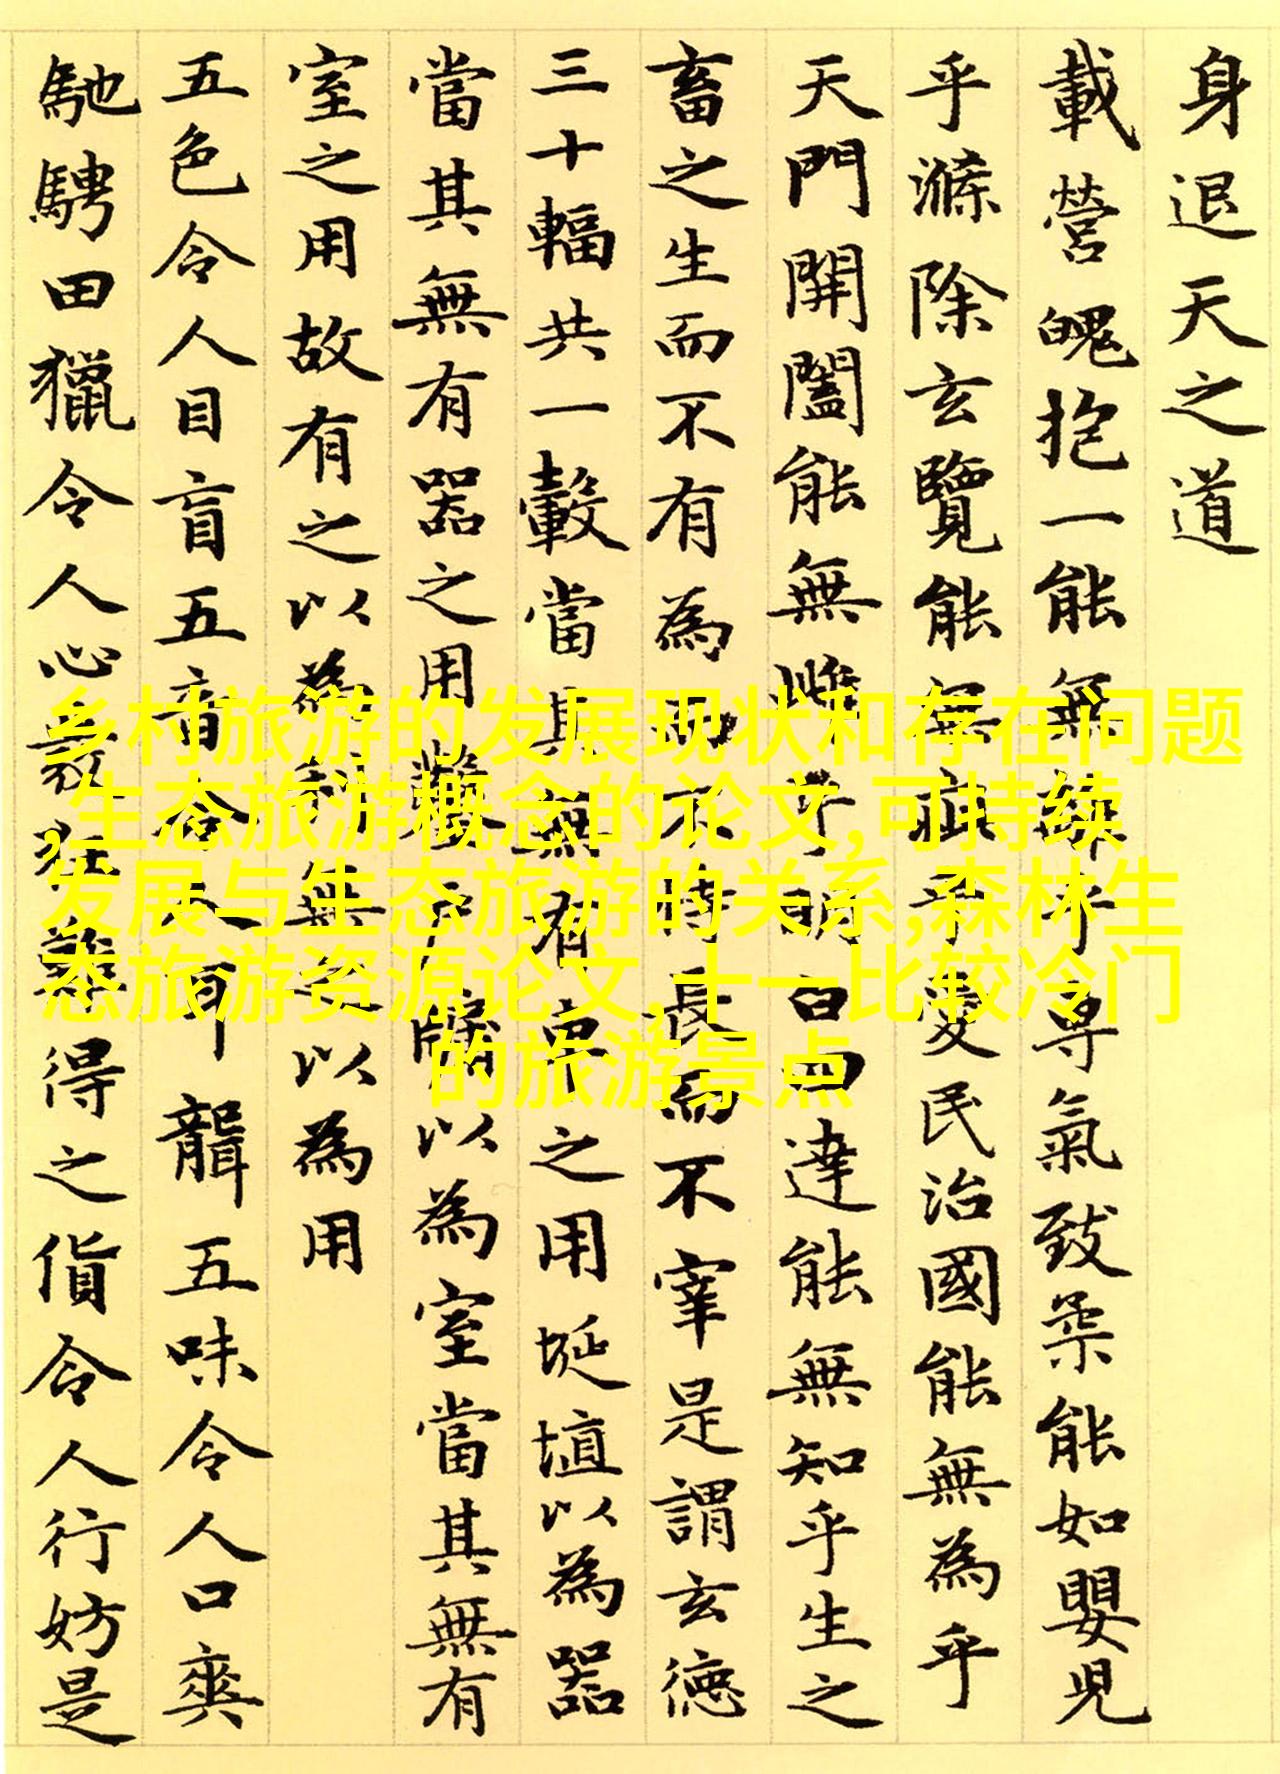 身退天之道
載營魄抱一能無離乎專氣致柔能如嬰兒
乎滌除玄覽能無疵乎愛民治國能無為乎
天門開闔能無雌乎明白四達能無知乎生之
畜之生而不有為而不恃長而不宰是謂玄德
三十輻共一轂當其無有車之用埏埴以為器
當其無有器之用鑿戶牖以為室當其無有
室之用故有之以為利無之以為用
五色令人目盲五音令人耳聾五味令人口爽
馳騁田獵令人心發狂難得之貨令人行妨是
乡村旅游的发展现状和存在问题
,生态旅游概念的论文,可持续
发展与生态旅游的关系,森林生
态旅游资源论文,十一比较冷门
的旅游景点